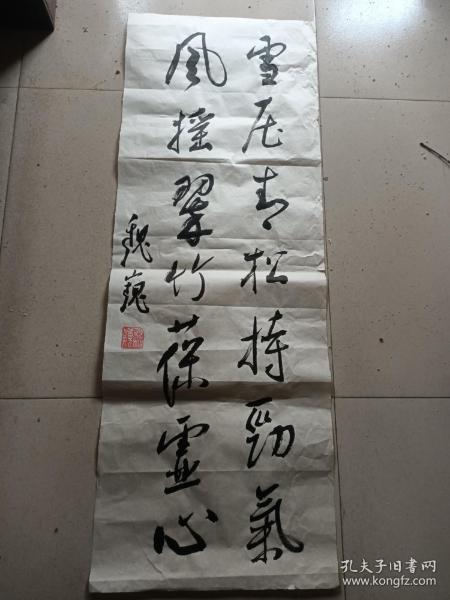 雪压青松持勁氣
風摇翠竹葆靈心
魏巍
孔夫子旧书网
www.kongfz.com